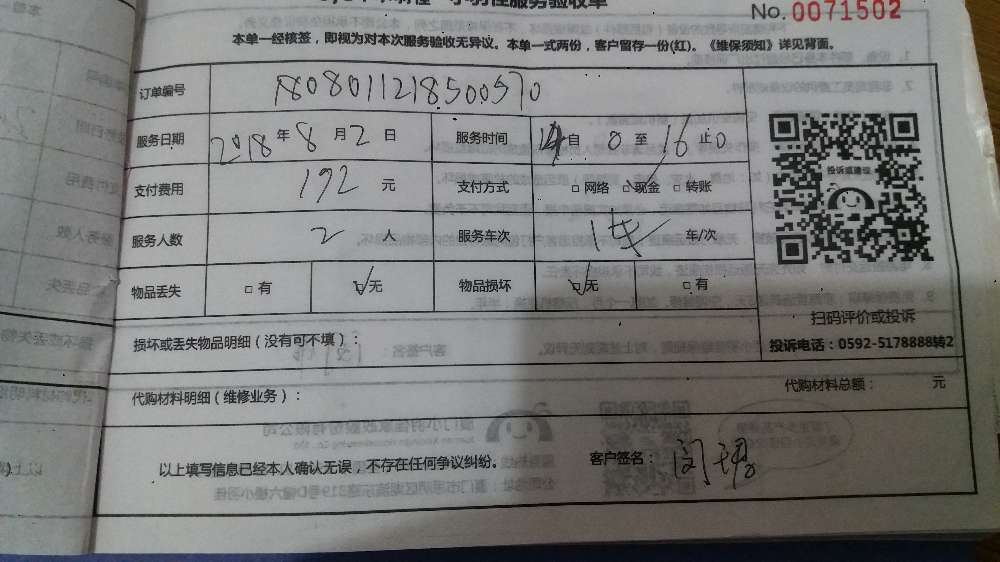 服务验收单
No. 0071502
本单一经核签，即视为对本次服务验收无异议。本单一式两份，客户留存一份(红)。《维保须知》详见背面。
订单编号 1808011218500570
服务日期 2018年8月2日 服务时间 14自0至16止0
支付费用 192元 支付方式 □网络 □现金 □转账
投诉或建议
服务人数 2人 服务车次 1车 车/次
物品丢失 □有 □无 物品损坏 □有 □无
扫码评价或投诉
损坏或丢失物品明细（没有可不填）：
投诉电话：0592-5178888转2
代购材料明细（维修业务）： 代购材料总额： 元
以上填写信息已经本人确认无误，不存在任何争议纠纷。 客户签名：